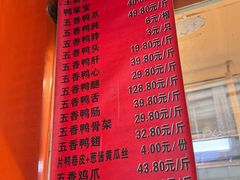 鸭掌宝
五香鸭爪 49.80元/斤
五香鸭肫 6元/根
五香鸭脖 3元/只
五香鸭头 19.80元/斤
五香鸭肝 39.80元/斤
五香鸭心 29.80元/斤
五香鸭腿 128.80元/斤
五香鸭舌 39.80元/斤
五香鸭肠 29.80元/斤
五香鸭骨架 32.80元/斤
五香鸭翅 4.00元/份
片鸭卷皮+葱油黄瓜丝
五香鸡爪 43.80元/斤